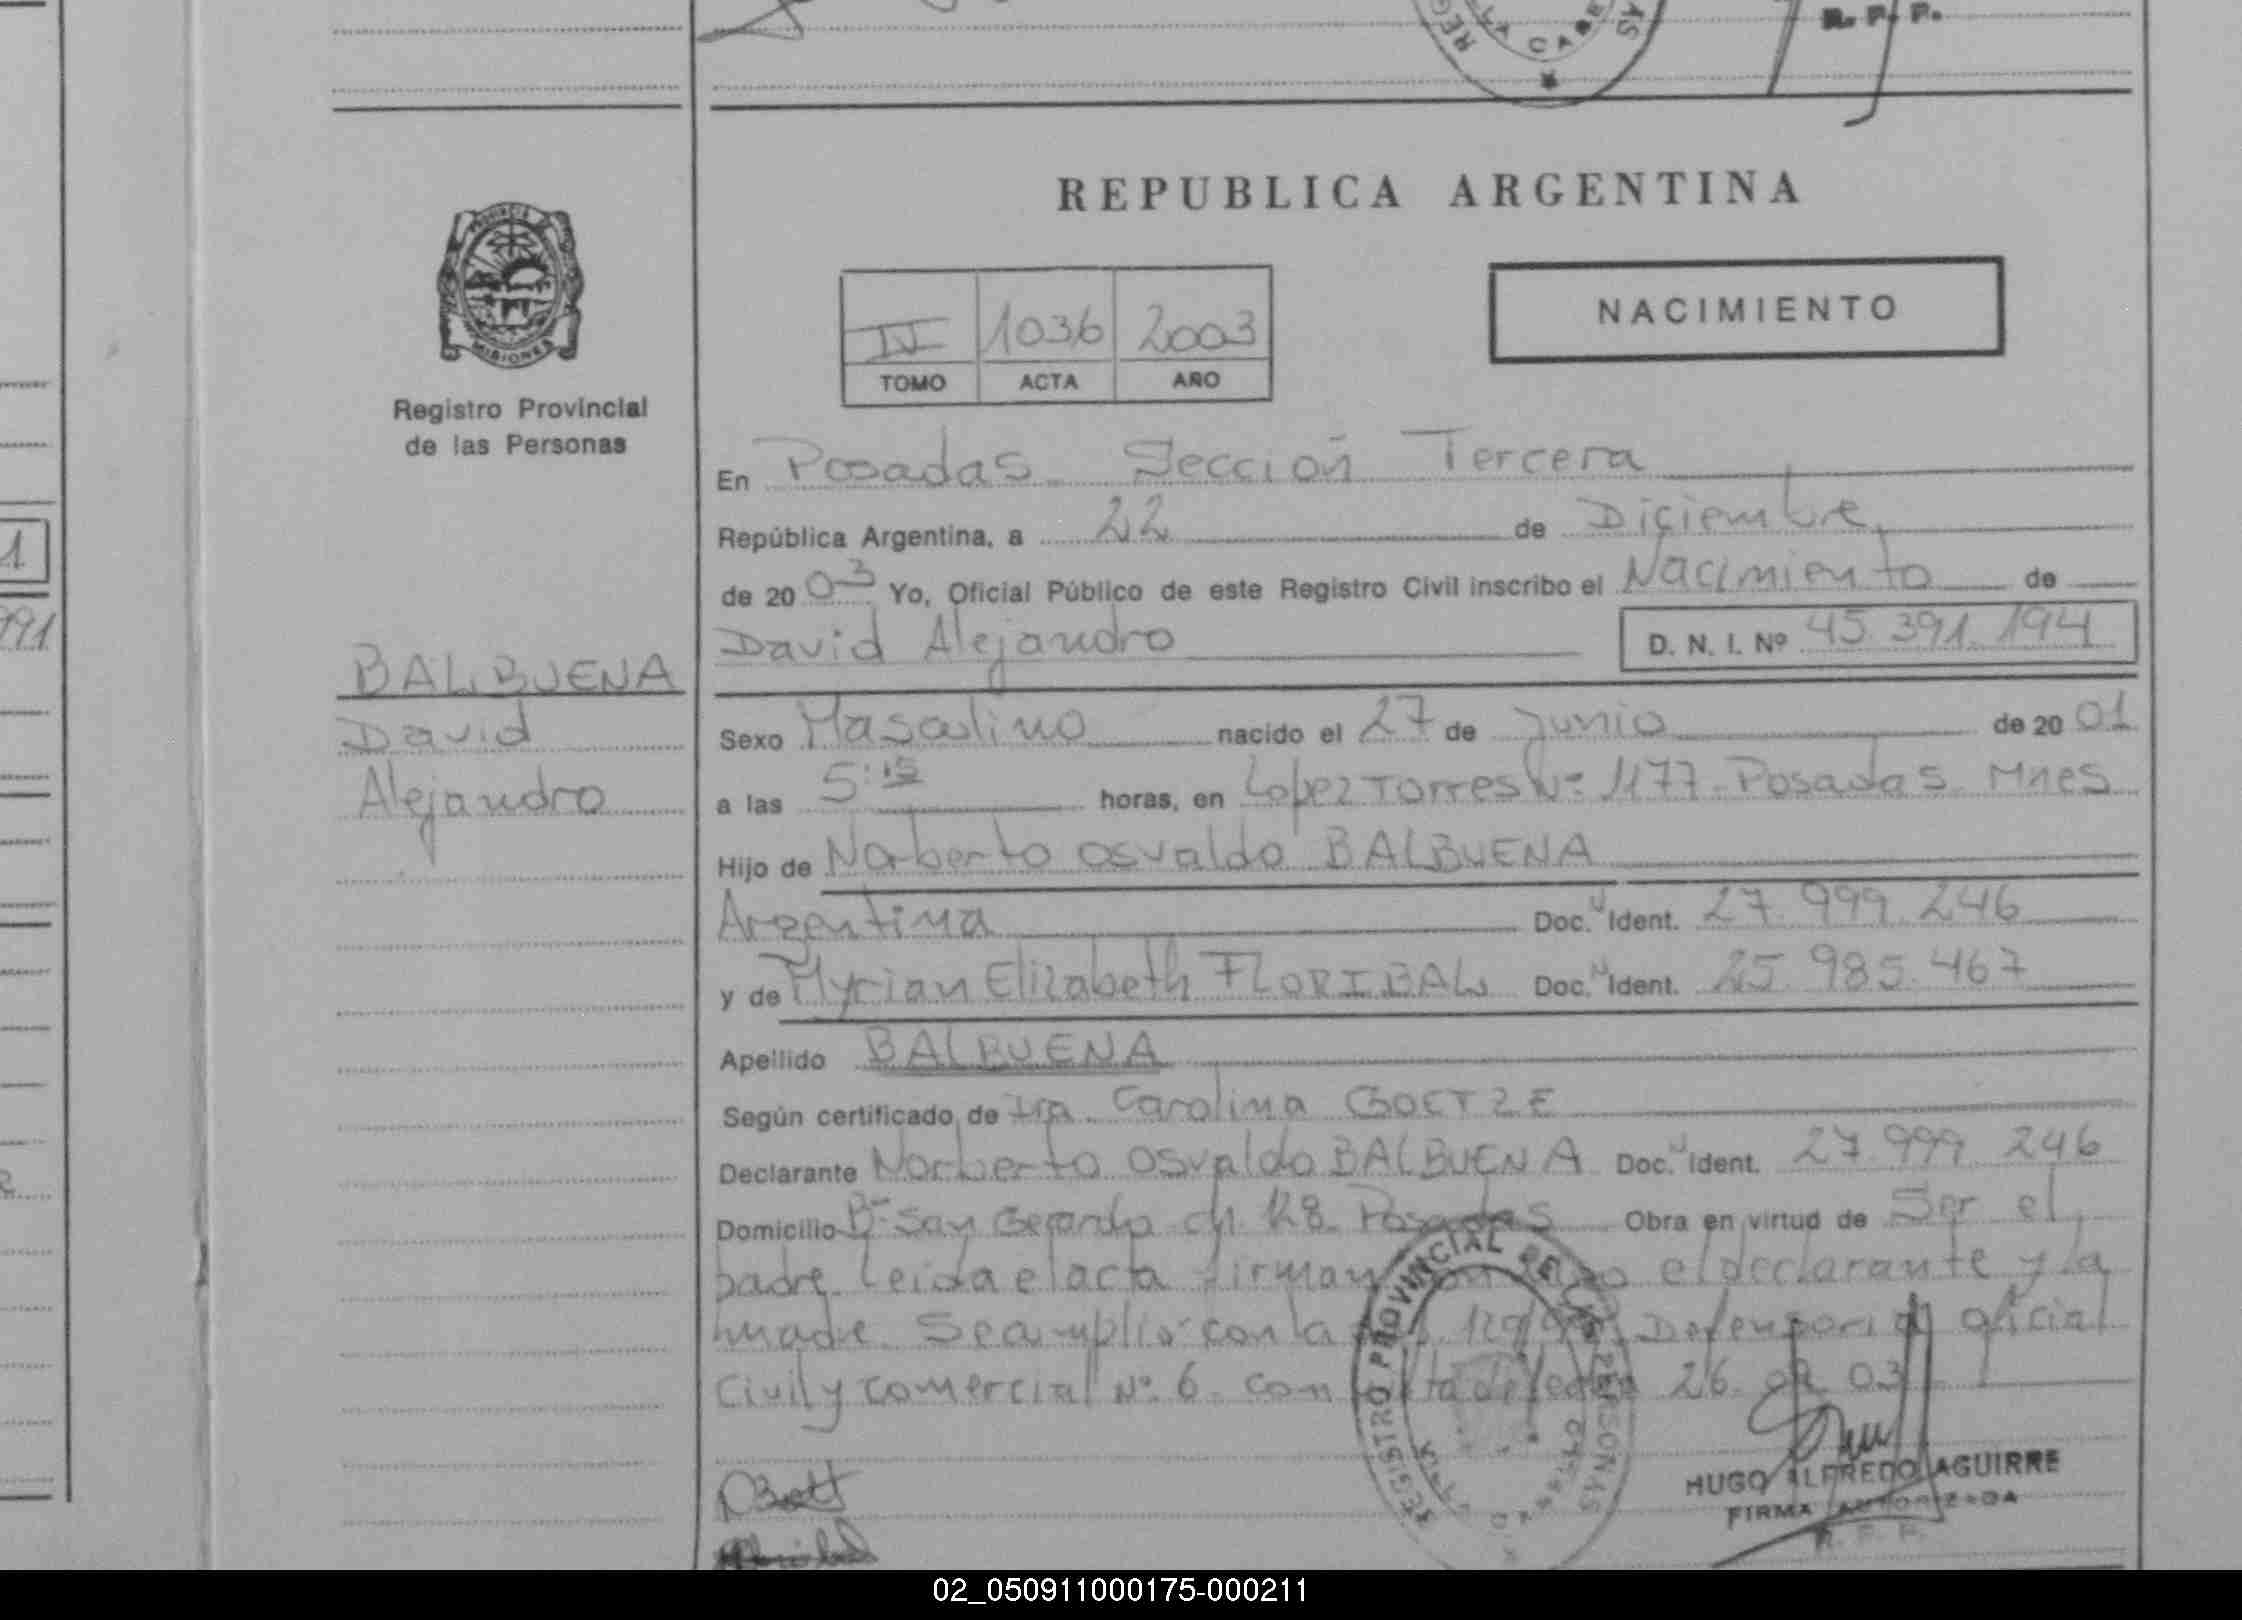 R. P. P.
REPUBLICA ARGENTINA
PROVINCIA
MISIONES
Registro Provincial
de las Personas
IV 1036 2003
TOMO ACTA AÑO
NACIMIENTO
En Posadas Sección Tercera
República Argentina, a 22 de Diciembre
de 2003 Yo, Oficial Público de este Registro Civil inscribo el Nacimiento de
David Alejandro D. N. I. Nº 45.391.194
BALBUENA
David
Alejandro
Sexo Masculino nacido el 27 de Junio de 2001
a las 5:15 horas, en Lopez Torres Nº 1177 - Posadas Mnes
Hijo de Norberto Osvaldo BALBUENA
Argentina Doc. Ident. 27.999.246
y de Myrian Elizabeth FLORIBAL Doc. Ident. 25.985.467
Apellido BALBUENA
Según certificado de Carolina GOETZE
Declarante Norberto Osvaldo BALBUENA Doc. Ident. 27.999.246
Domicilio Bº San Gerardo ch 128 Posadas Obra en virtud de Ser el
padre Leida el acta firman el declarante y la
madre Se amplio con la Defensoria oficial
Civil y Comercial Nº 6 con 26 03
REGISTRO PROVINCIAL DE LAS PERSONAS
HUGO ALFREDO AGUIRRE
FIRMA AUTORIZADA
R. P. P.
02_050911000175-000211